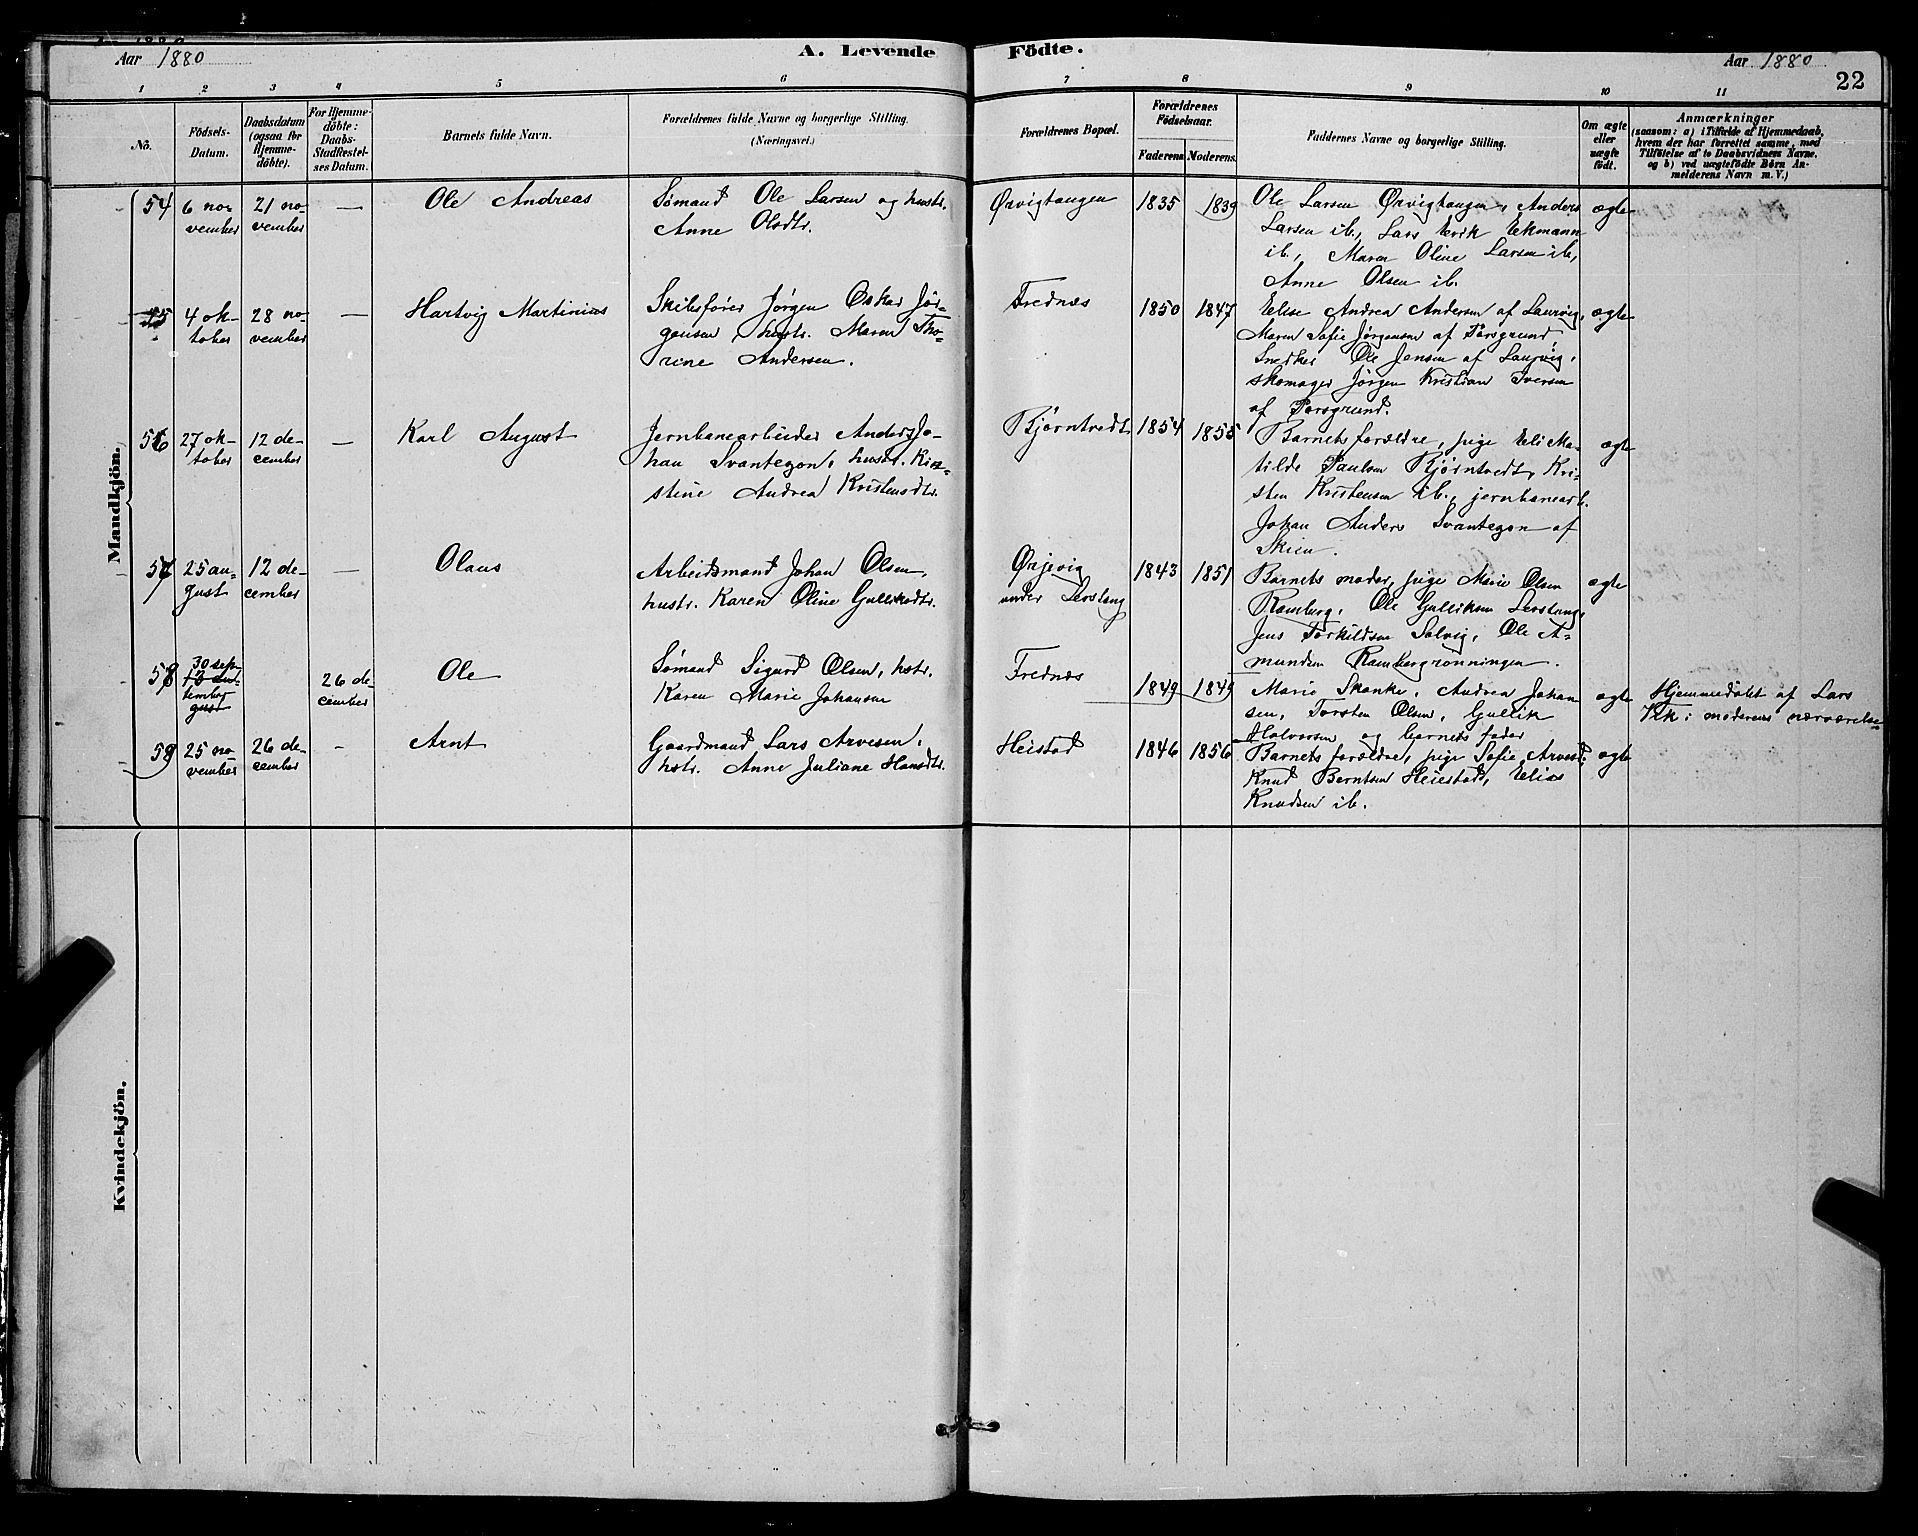 Aar 1880
A. Levende
Födte.
Aar 1880
22
1 2 3 4 5 6 7 8 9 10 11
No.
Födsels-
Datum.
Daabsdatum
(ogsaa for
Hjemme-
döbte).
For Hjemme-
döbte:
Daabs-
Stadfæstel-
ses Datum.
Barnets fulde Navn.
Forældrenes fulde Navne og borgerlige Stilling.
(Næringsvei.)
Forældrenes Bopæl.
Forældrenes
Födselsaar.
Faderens Moderens
Faddernes Navne og borgerlige Stilling.
Om ægte
eller
uægte
födt.
Anmærkninger
(saasom: a) i Tilfælde af Hjemmedaab,
hvem der har forrettet samme, med
Tilföielse af to Daabsvidners Navne,
og b) ved uægtefödte Börn An-
melderens Navn m. V.)
Mandkjön.
54
6 no-
vember
21 no-
vember
—
Ole Andreas
Sømand Ole Larsen og hustr.
Anne Olsdtr.
Ørvigtangen
1835
1839
Ole Larsen Ørvigtangen, Anders
Larsen ib., Lars Erik Ekmann
ib., Maren Oline Larsen ib,
Anne Olsen ib.
ægte
55
4 ok-
tober
28 no-
vember
—
Hartvig Martinius
Skibsfører Jørgen Oskar Jør-
gensen, hustr. Maren Tho-
rine Andersen.
Frednæs
1850
1847
Elise Andrea Andersen af Laurvig,
Maren Sofie Jørgensen af Porsgrund
Snedker Ole Jensen af Laurvig,
skomager Jørgen Kristian Iversen
af Porsgrund.
ægte
56
27 ok-
tober
12 de-
cember
—
Karl August
Jernbanearbeider Anders Jo-
han Svantezon, hustr. Kir-
stine Andrea Kristensdtr.
Bjørntvedt
1854
1855
Barnets forældre, pige Eli Ma-
tilde Paulsen Bjørntvedt, Kri-
sten Kristensen ib., jernbanearb.
Johan Anders Svantezon af
Skien.
ægte
57
25 au-
gust
12 de-
cember
—
Olaus
Arbeidsmand Johan Olsen,
hustr. Karen Oline Gulliksdtr.
Ørjevig
under Lerstang
1843
1851
Barnets moder, pige Marie Olsen
Ramberg, Ole Gulliksen Lerstang,
Jens Torkildsen Solvig, Ole A-
mundsen Rambergrønningen.
ægte
58
30 sep-
tember
26 de-
cember
Ole
Sømand Sigurd Olsen, hstr.
Karen Marie Johansen
Frednæs
1849
1849
Marie Skanke, Andrea Johan
sen, Torsten Olsen, Gullik
Halvorsen og barnets fader
ægte
Hjemmedøbt af Lars
Vik i moderens nærværelse
59
25 no-
vember
26 de-
cember
-
Arnt
Gaardmand Lars Arvesen,
hstr. Anne Juliane Hansdtr.
Heistad
1846
1856
Barnets forældre, pige Sofie Arvesd.
Knud Berntsen Heiestad, Elias
Knudsen ib.
ægte
Kvindekjön.